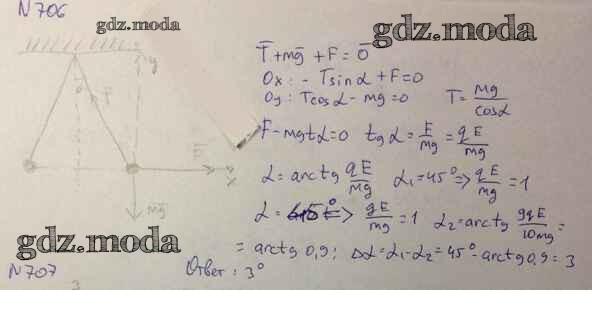 N 706
gdz.moda
gdz.moda
T̅ + mg̅ + F̅ = 0̅
Ox: - Tsinα + F = 0
Oy: Tcosα - mg = 0 T = mg/cosα
F - mgtgα = 0 tgα = F/mg = qE/mg
α = arctg qE/mg α₁ = 45° => qE/mg = 1
α = 45° => qE/mg = 1 α₂ = arctg 9qE/10mg =
= arctg 0,9; Δα = α₁ - α₂ = 45° - arctg 0,9 = 3
Ответ: 3°
y
T̅
F̅
x
mg̅
gdz.moda
N 707